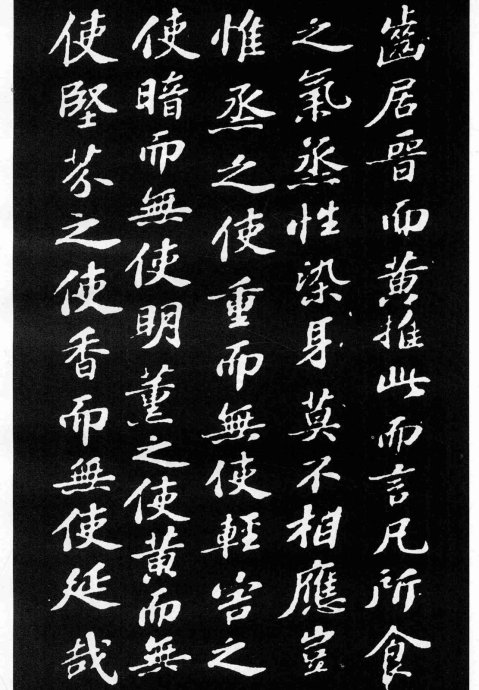 齒居晉而黃推此而言凡所食
之氣烝性染身莫不相應豈
惟烝之使重而無使輕害之
使暗而無使明薰之使黃而無
使堅芬之使香而無使延哉